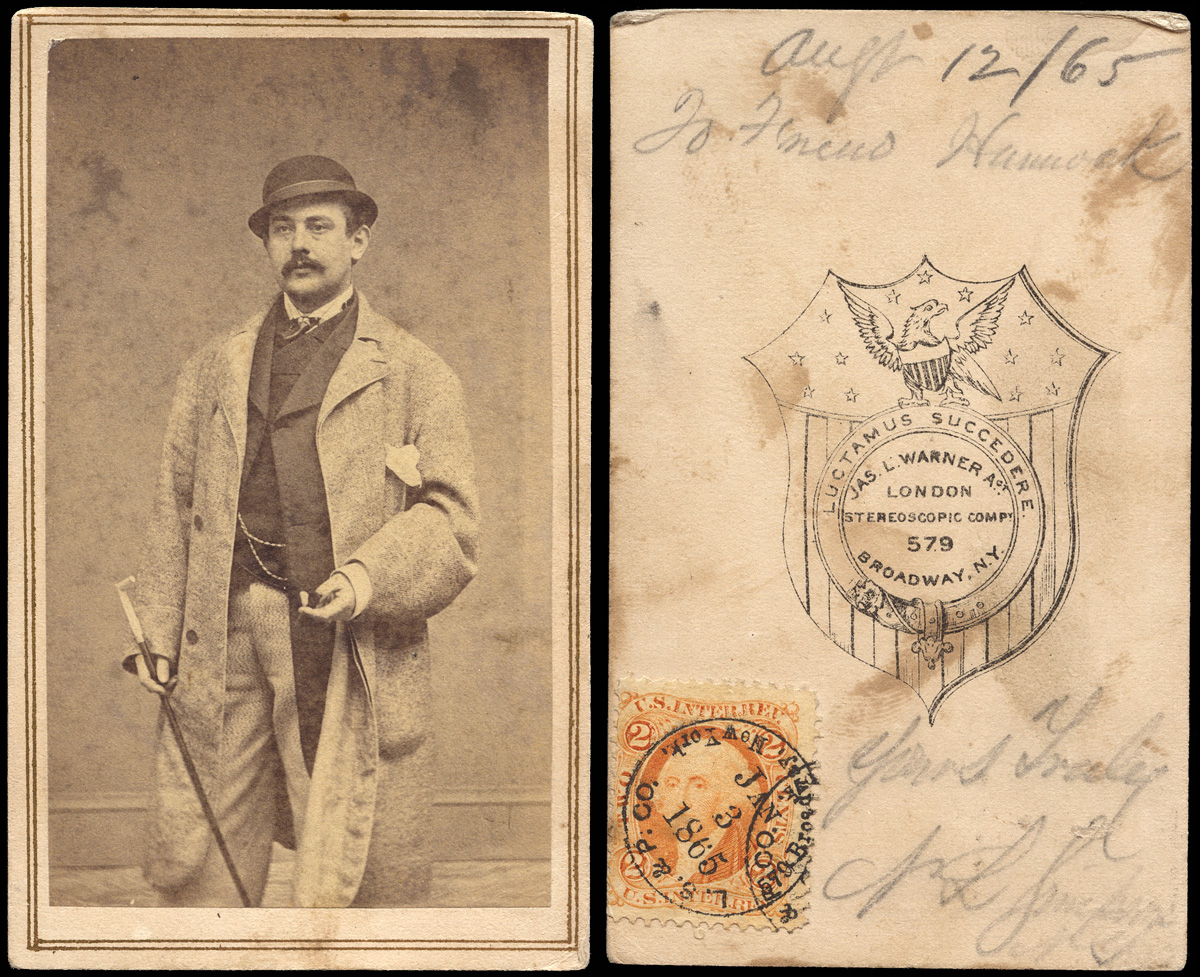 Augt 12/65
To Friend Hancock
LUCTAMUS SUCCEDERE.
JAS. L. WARNER AGT.
LONDON
STEREOSCOPIC COMPY.
579
BROADWAY, N.Y.
U.S. INTER. REV.
2
New York.
JAN.
3
1865
L. S. & P. CO.
579 Broadway
U.S. INTER. REV.
Yours Truly